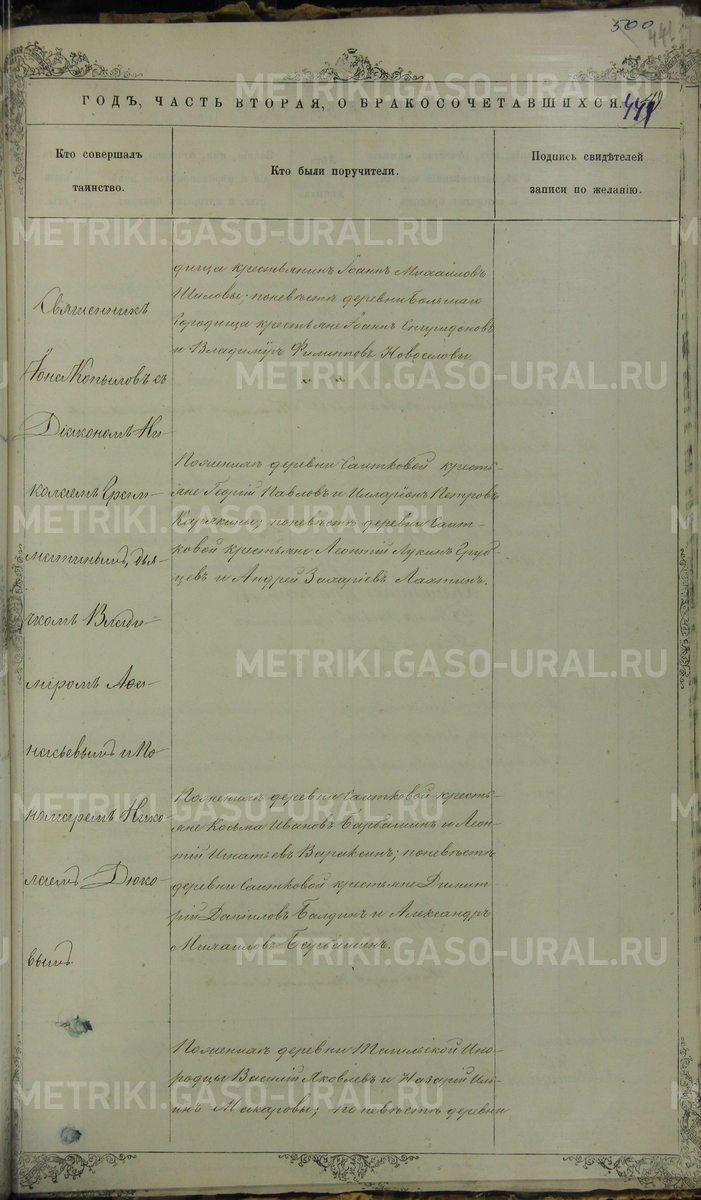 500
441
ГОДЪ, ЧАСТЬ ВТОРАЯ, О БРАКОСОЧЕТАВШИХСЯ.
441
Кто совершалъ
таинство.
Кто были поручители.
Подпись свидѣтелей
записи по желанію.
METRIKI.GASO-URAL.RU
Священникъ
Іона Копыловъ съ
Діакономъ Ни-
колаемъ
дья-
чкомъ Влади-
міромъ Афа-
насьевымъ и По-
номаремъ Нико-
лаемъ Дюко-
вымъ
дища крестьянинъ Іоаннъ Михайловъ
Шиловы; по невѣстѣ деревни Большаго
Городища крестьяне Іоаннъ Спиридоновъ
и Владиміръ Филипповъ Новоселовы
По женихѣ деревни Саитковой кресть-
яне Георгій Павловъ и Илларіонъ Петровъ
Карякины; по невѣстѣ деревни Саит-
ковой крестьяне Леонтій Лукинъ
и Андрей Захаріевъ Лаптинъ.
По женихѣ деревни Саитковой кресть-
яне Косьма Ивановъ Барбашинъ и Леон-
тій Игнатьевъ Вараксинъ; по невѣстѣ
деревни Саитковой крестьяне Димит-
рій Даніиловъ Балдинъ и Александръ
Михаиловъ Барбашинъ.
По женихѣ деревни Тагильской Ино-
родцы Василій Яковлевъ и Назарій Иль-
инъ Макаровы; по невѣстѣ деревни
METRIKI.GASO-URAL.RU